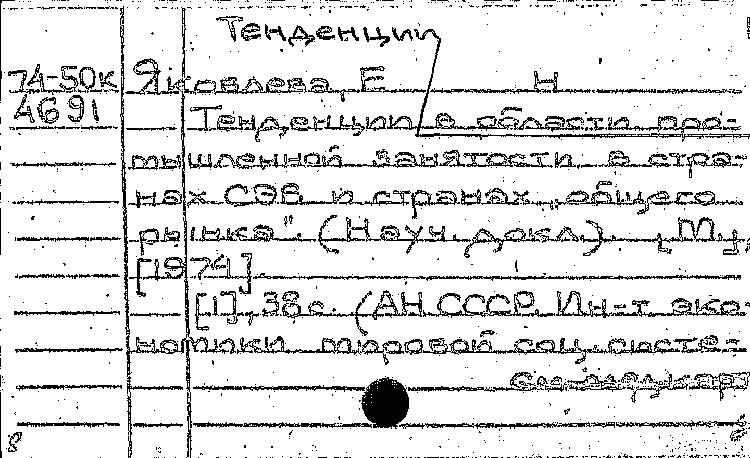 Тенденции
74-50к Яковлева, Е Н
4691 Тенденции в области про-
мышленной занятости в стра-
нах СЭВ и странах „общего
рынка". (Науч. докл.). М.,
[1974].
[1], 38 с. (АН СССР. Ин-т эко-
номики мировой соц. систе-
см. след. карт
8